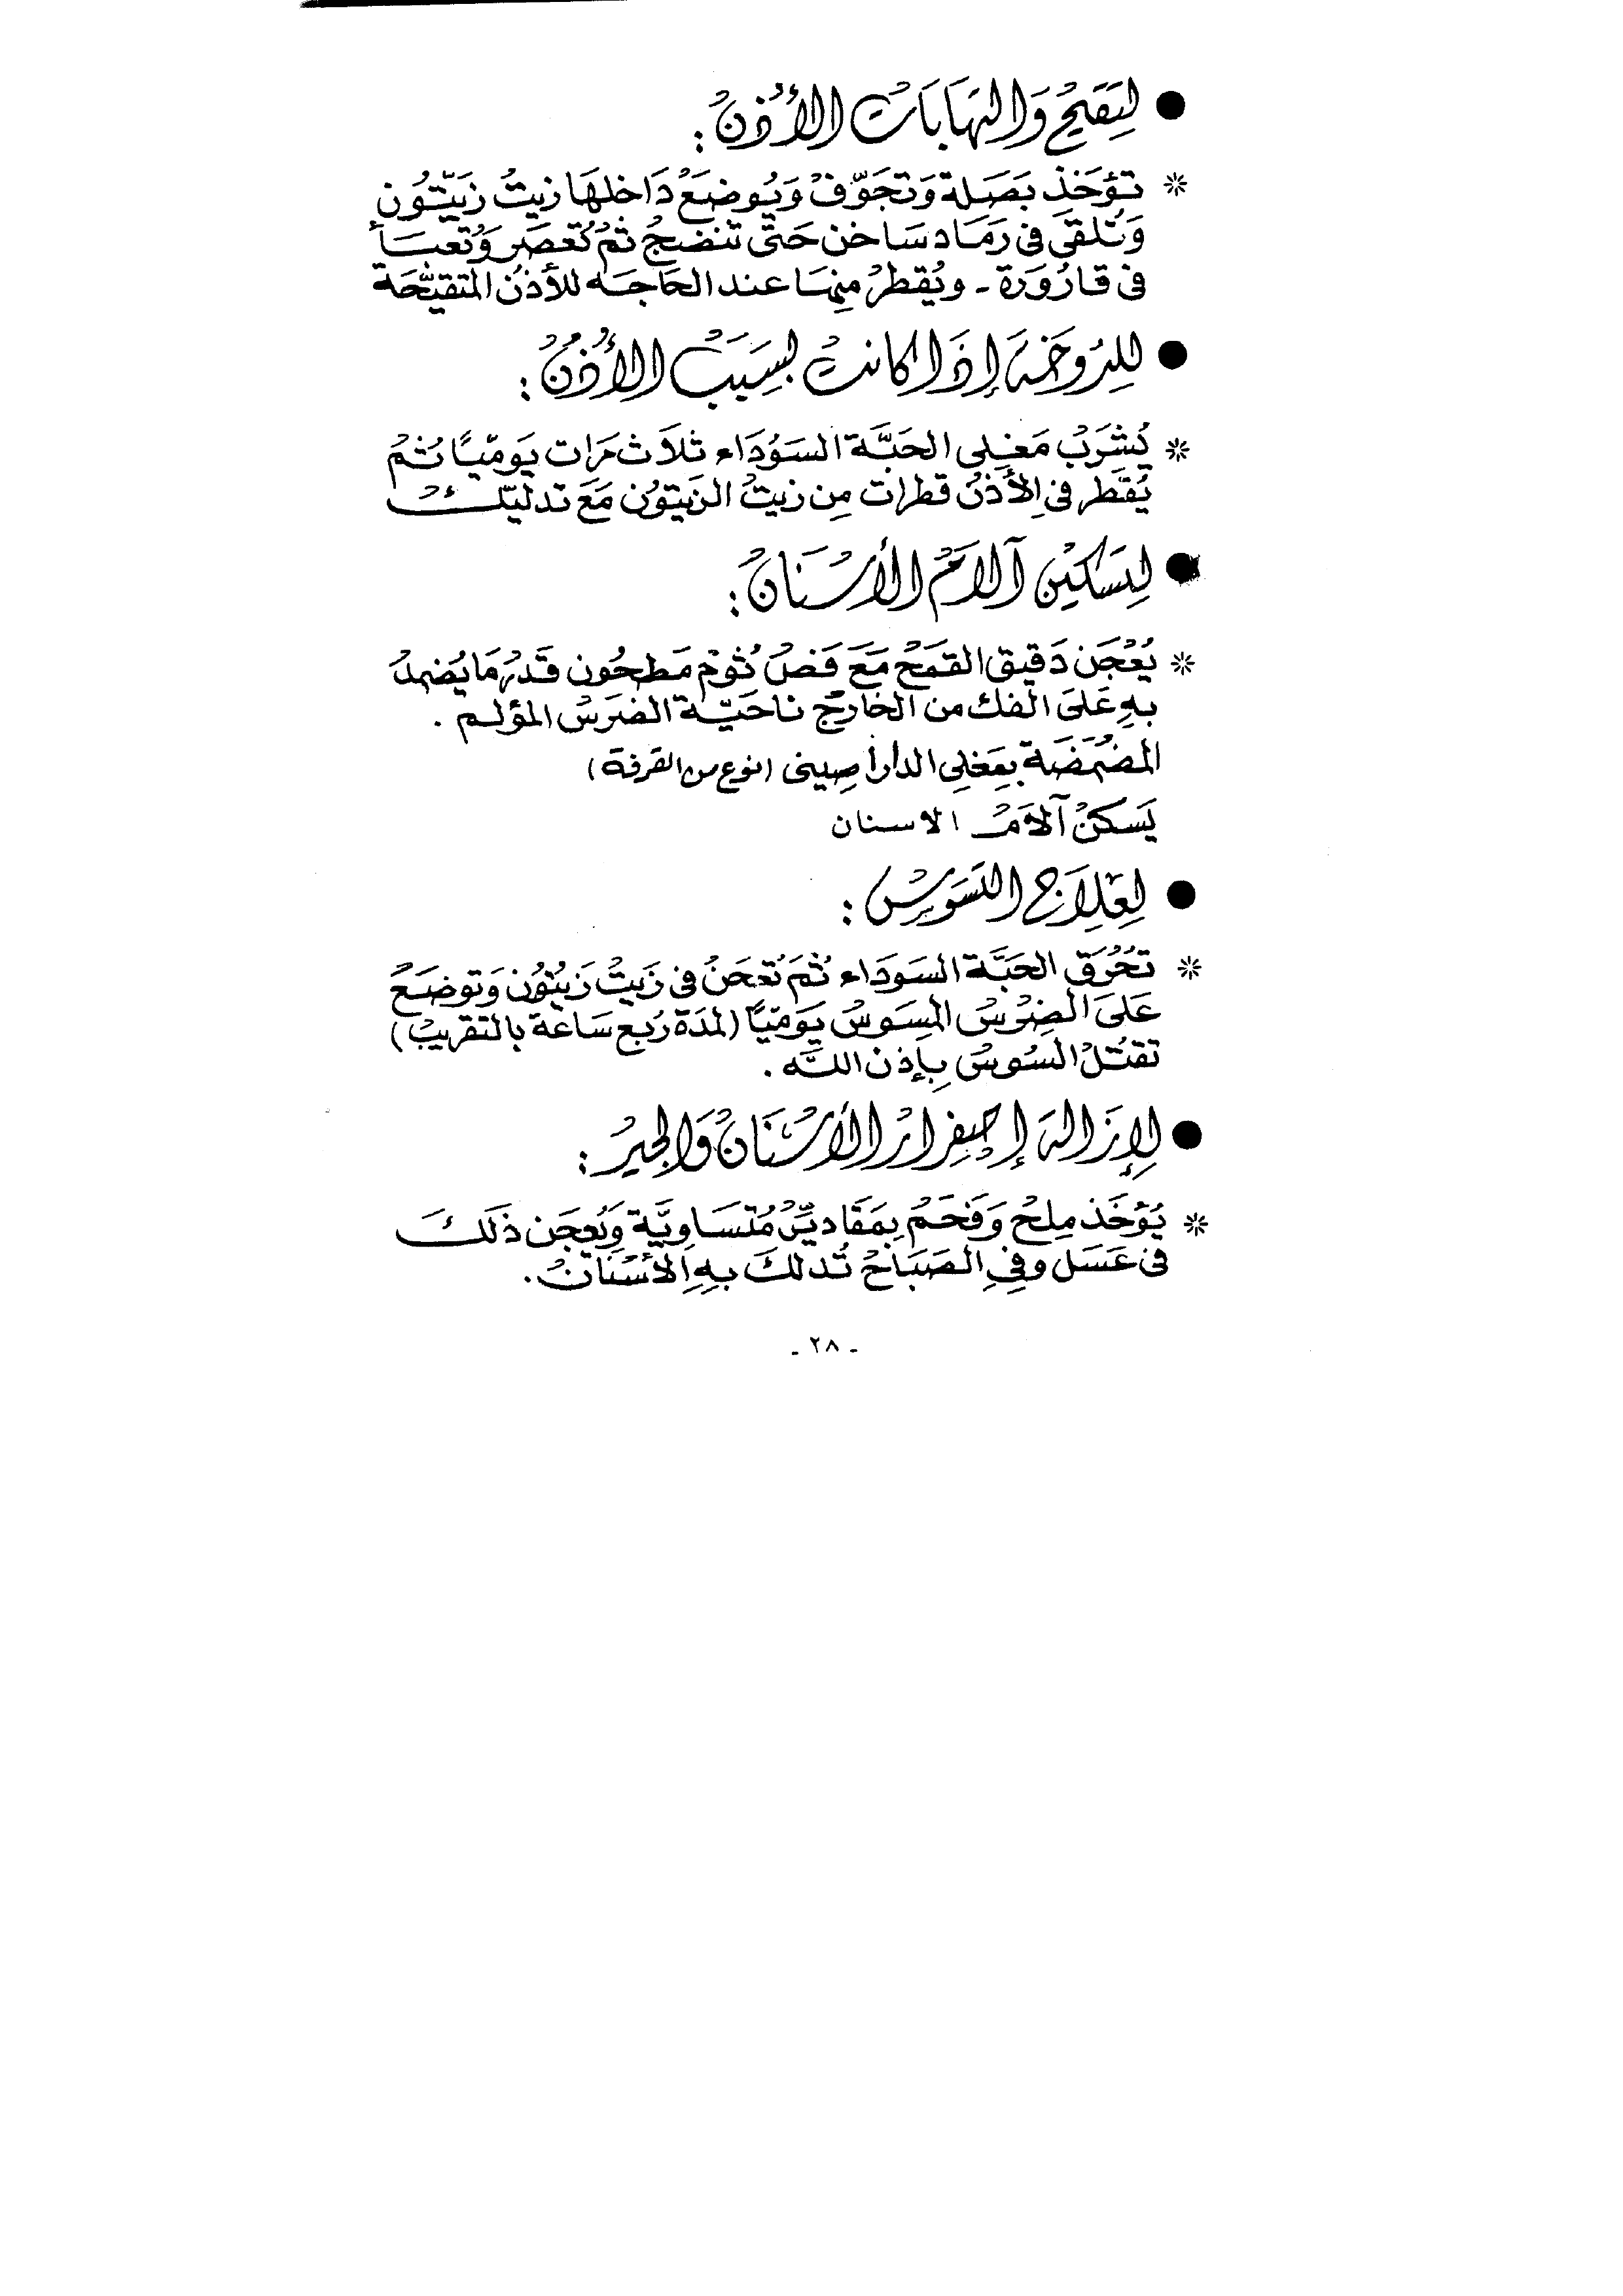 ● لتقيح والتهابات الأذن :
* تؤخذ بصلة وتجوّف ويوضع داخلها زيت زيتون
وتلقى في رماد ساخن حتى تنضج ثم تعصر وتعبأ
في قارورة - ويقطر منها عند الحاجه للأذن المتقيّحة
● للدوخة إذا كانت بسبب الأذن :
* يُشرب مغلي الحبَّة السوداء ثلاث مرات يوميًا ثم
يقطر في الأذن قطرات من زيت الزيتون مع تدليك
● لتسكين آلام الأسنان :
* يُعْجَن دقيق القمح مع فص ثوم مطحون قدر ما يضمد
به على الفك من الخارج ناحيّة الضرس المؤلم .
المضمضة بمغلي الدارا صيني (نوع من القرفة)
يسكن آلام الاسنان
● لعلاج التسوس :
* تحرق الحبَّة السوداء ثم تعجن في زيت زيتون وتوضع
على الضرس المسوس يوميًا (لمدة ربع ساعة بالتقريب)
تقتل السوس بإذن اللَّه .
● لإزالة إصفرار الأسنان والجير :
* يُؤخذ ملح وفحم بمقادير متساويَّة ويُعجن ذلك
في عسل وفي الصباح تُدلك به الأسنان .
- ٢٨ -